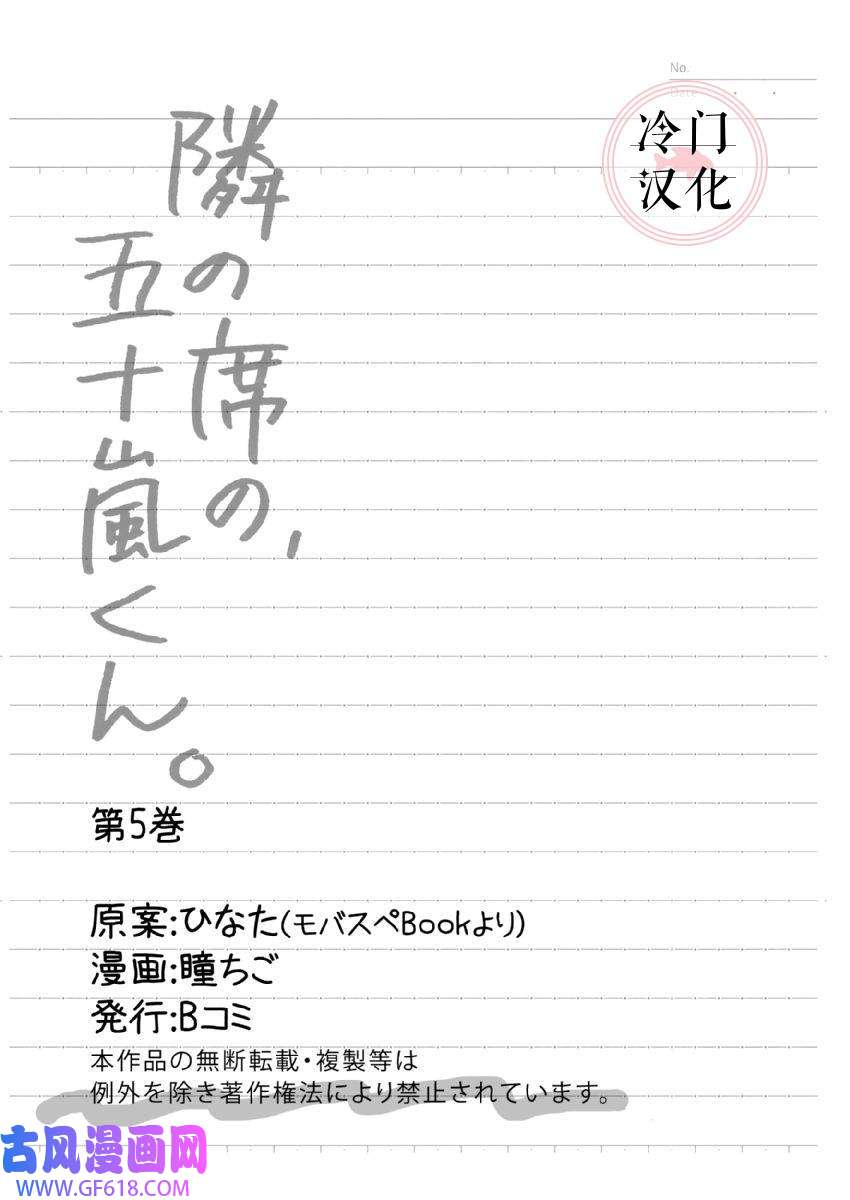 No.
Date
冷门
汉化
隣の席の、
五十嵐くん。
第5巻
原案:ひなた(モバスペBookより)
漫画:瞳ちご
発行:Bコミ
本作品の無断転載・複製等は
例外を除き著作権法により禁止されています。
古风漫画网
WWW.GF618.COM